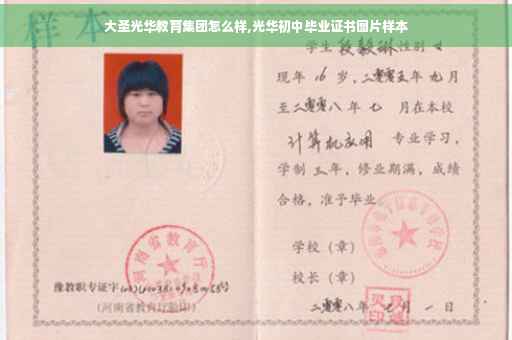 大圣光华教育集团怎么样,光华初中毕业证书图片样本
样本
学生段毅琳性别女
现年16岁,二零零五年九月
至二零零八年七月在本校
计算机应用 专业学习,
学制三年,修业期满,成绩
合格,准予毕业
学校(章)
校长(章)
二零零八年七月一日
河南省教育厅
豫教职专证字
(河南省教育厅验印)